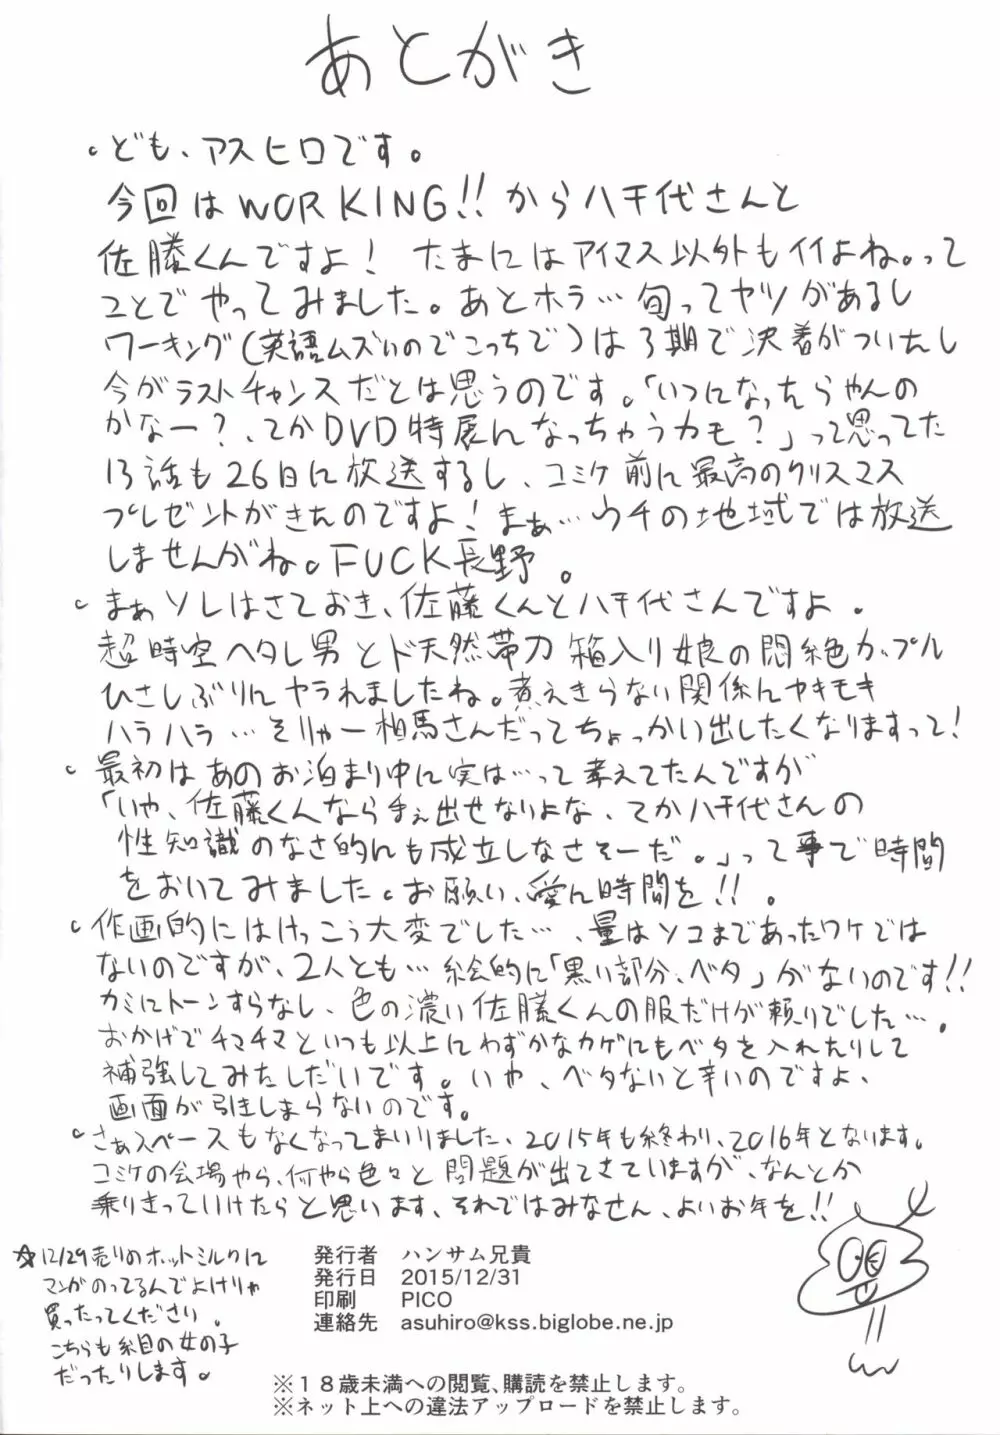 あとがき
・ども、アスヒロです。
今回はWORKING!!から八千代さんと
佐藤くんですよ! たまにはアイマス以外もイイよね。って
ことでやってみました。あとホラ…旬ってヤツがあるし
ワーキング(英語ムズいのでこっちで)は3期で決着がついたし
今がラストチャンスだとは思うのです。「いつになったらやんの
かなー?、てかDVD特展になっちゃうカモ?」って思ってた
13話も26日に放送するし、コミケ前に最高のクリスマス
プレゼントがきたのですよ!まぁ…ウチの地域では放送
しませんがね。FUCK長野。
・まぁソレはさておき、佐藤くんと八千代さんですよ。
超時空ヘタレ男とド天然帯刀箱入り娘の悶絶カップル
ひさしぶりにヤラれましたね。煮えきらない関係にヤキモキ
ハラハラ…そりゃー相馬さんだってちょっかい出したくなりますって!
・最初はあのお泊まり中に実は…って考えてたんですが
「いや、佐藤くんなら手ぇ出せないよな、てか八千代さんの
性知識のなさ的にも成立しなさそーだ。」って事で時間
をおいてみました。お願い、愛に時間を!!。
・作画的にはけっこう大変でした…、量はソコまであったワケでは
ないのですが、2人とも…絵的に「黒い部分、ベタ」がないのです!!
カミにトーンすらなし、色の濃い佐藤くんの服だけが頼りでした…。
おかげでチマチマといつも以上にわずかなカゲにもベタを入れたりして
補強してみたしだいです。いや、ベタないと辛いのですよ、
画面が引きしまらないのです。
・さぁスペースもなくなってまいりました、2015年も終わり、2016年となります。
コミケの会場やら、何やら色々と問題が出てきていますが、なんとか
乗りきっていけたらと思います、それではみなせん、よいお年を!!
☆12/29売りのホットミルクに
マンガのってるんでよけりゃ
買ったってくださり。
こちらも糸目の女の子
だったりします。
発行者 ハンサム兄貴
発行日 2015/12/31
印刷 PICO
連絡先 asuhiro@kss.biglobe.ne.jp
※18歳未満への閲覧、購読を禁止します。
※ネット上への違法アップロードを禁止します。